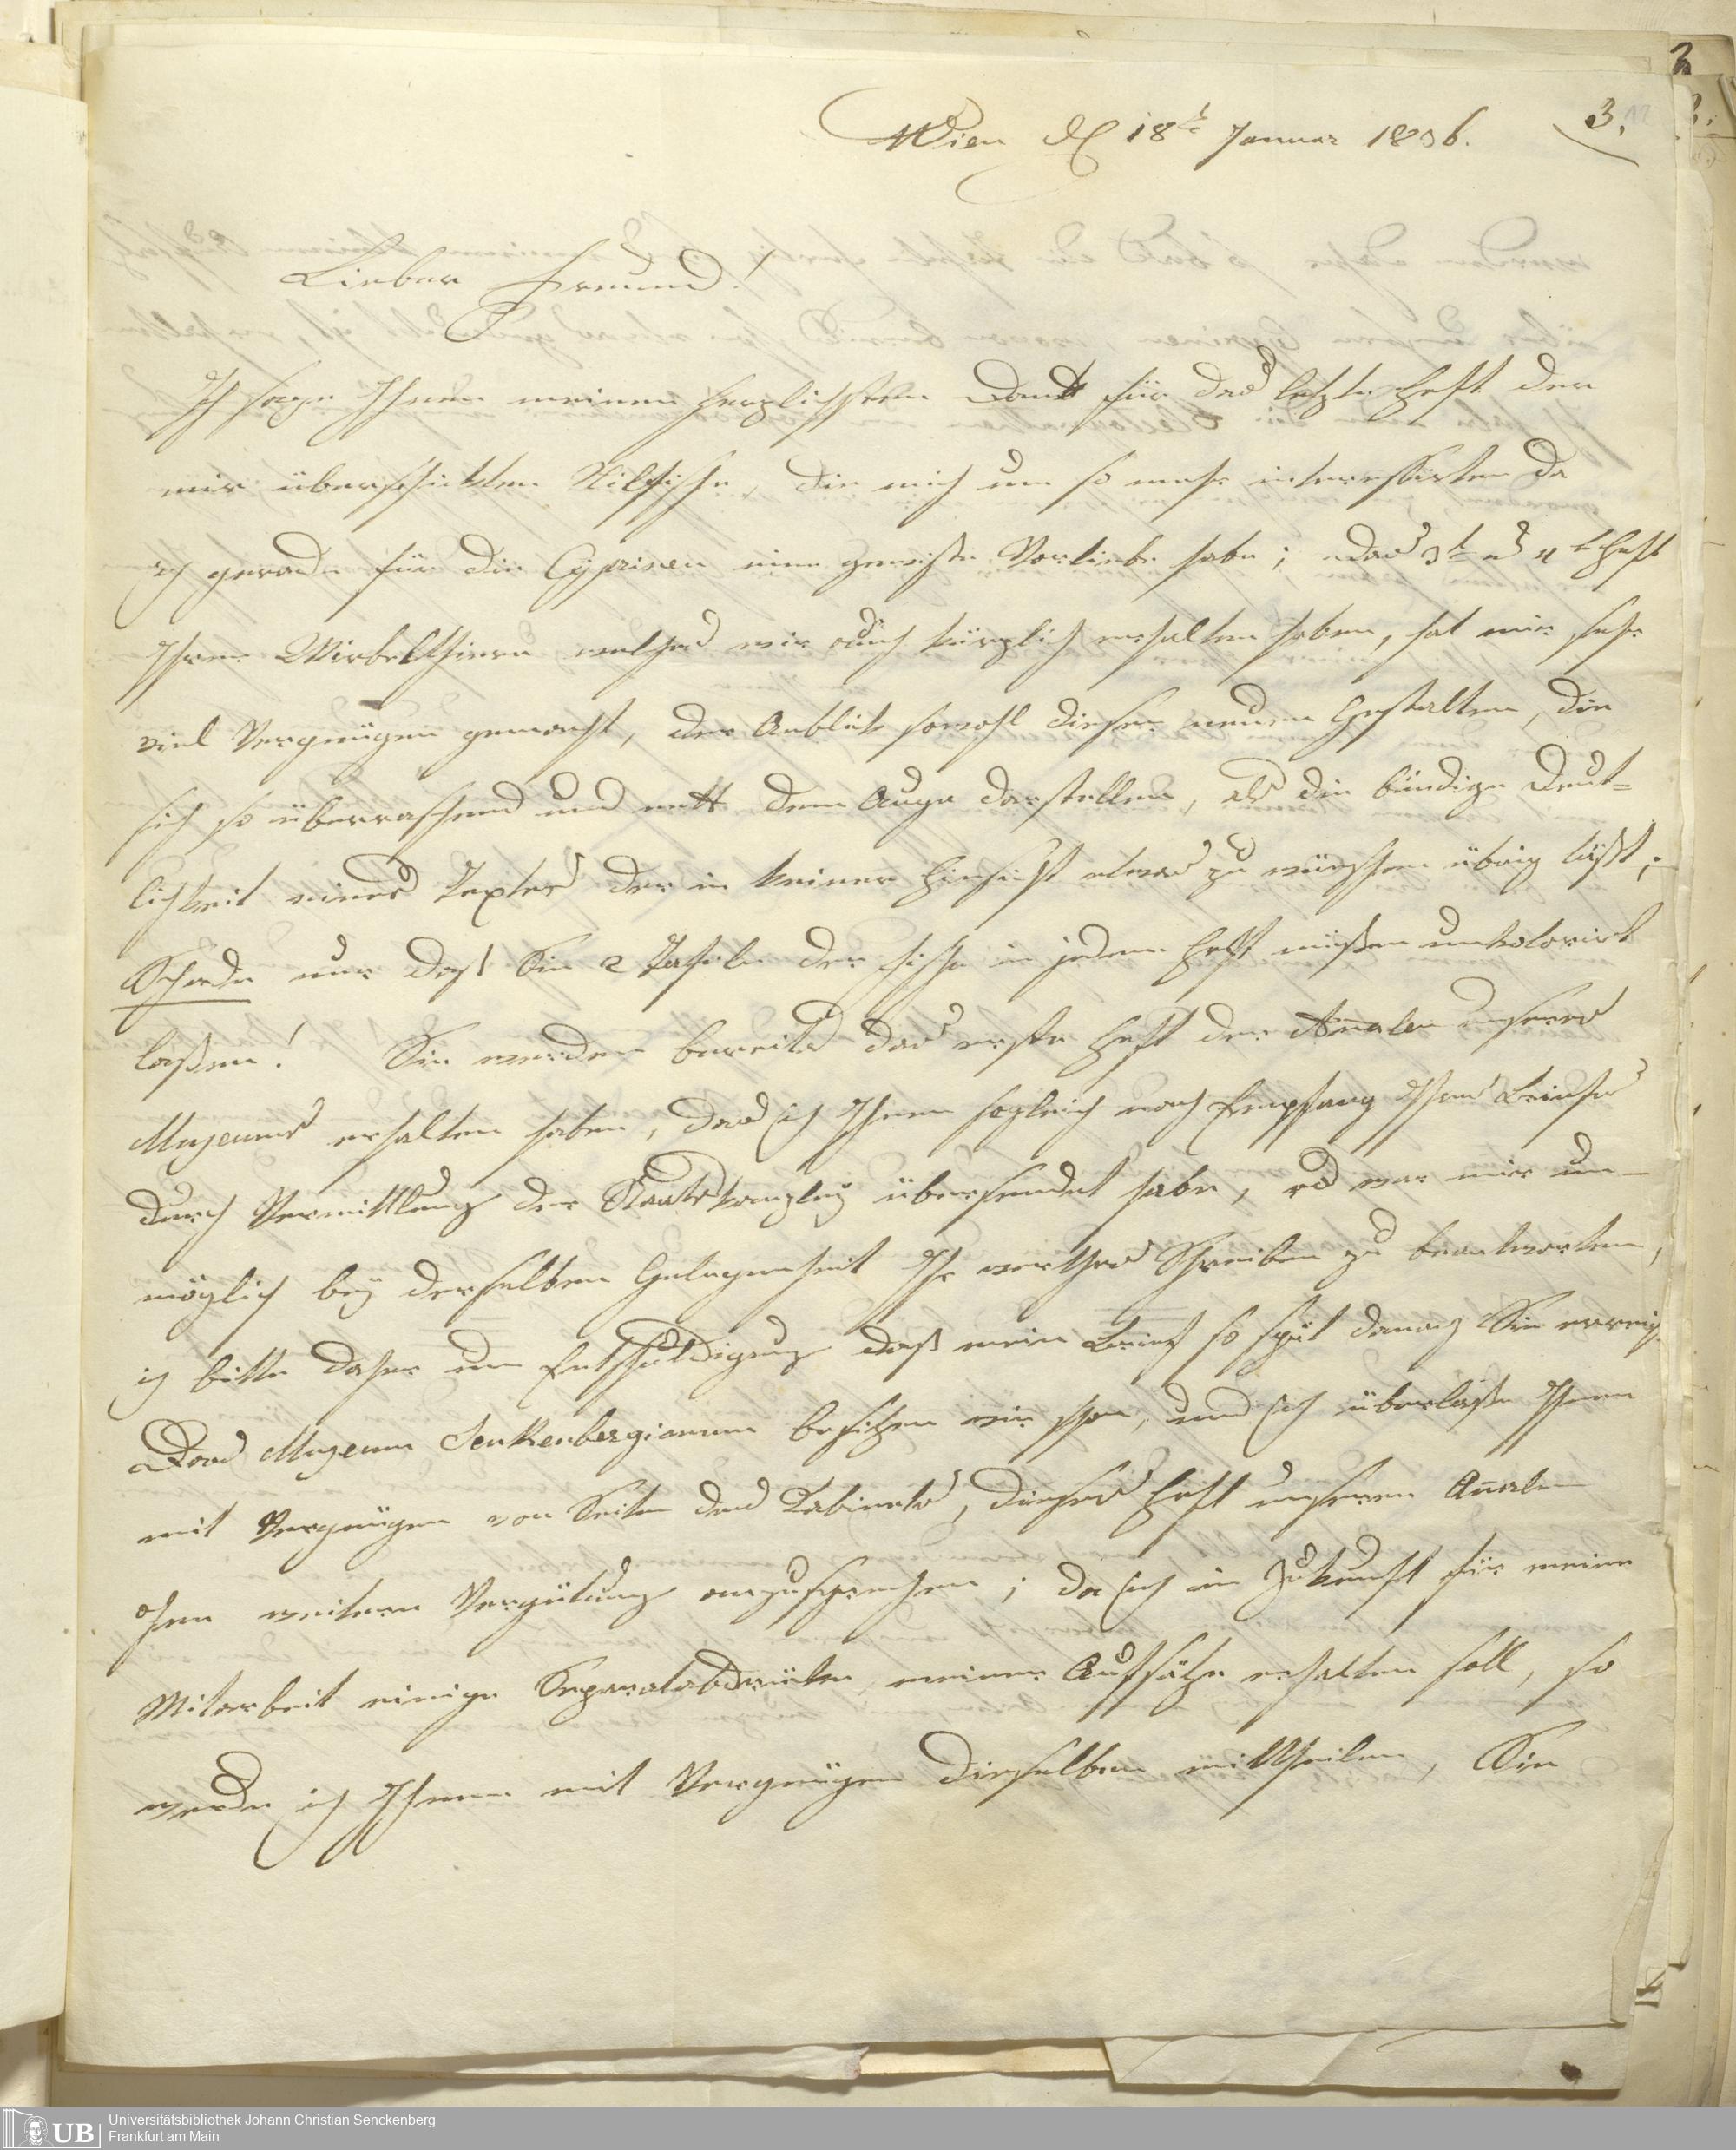 3.
Wien d 18t Januar 1836.
Lieber Freund!
Ich sage Ihnen meinen herzlichsten Dank für das letzte Heft der
mir überschickten Nilfische, die mich um so mehr interessirten da
ich gerade für die Cyprinen eine gewisse Vorliebe habe; das 3t u 4t Heft
Ihrer Wirbelthiere welches wir auch kürzlich erhalten haben, hat mir sehr
viel Vergnügen gemacht, der Anblick sowohl dieser neuen Gestalten, die
sich so überraschend und nett dem Auge darstellen, als die bündige Deut-
lichkeit eines Textes der in keiner Hinsicht etwas zu wünschen übrig läßt;
Schade nur daß Sie 2 Tafeln der Fische in jedem Heft müßen unkolorirt
laßen! Sie werden bereits das erste Heft der Añalen unseres
Museums erhalten haben, das ich Ihnen sogleich nach Empfang Ihres Briefes
durch Vermittlung der Staatskanzley übersendet habe, es war mir un-
möglich bey derselben Gelegenheit Ihr werthes Schreiben zu beantworten,
ich bitte daher um Entschuldigung daß mein Brief so spät danach Sie erreicht
Das Museum Senkenbergianum besitzen wir schon, und ich überlaße Ihnen
mit Vergnügen von Seiten des Kabinets, dieses Heft unserer Añalen
ohne weitere Vergütung anzusprechen; da ich in Zukunft für meine
Mitarbeit einige Separatabdrücke meiner Aufsätze erhalten soll, so
werde ich Ihnen mit Vergnügen dieselben mittheilen, Sie
UB Universitätsbibliothek Johann Christian Senckenberg
Frankfurt am Main